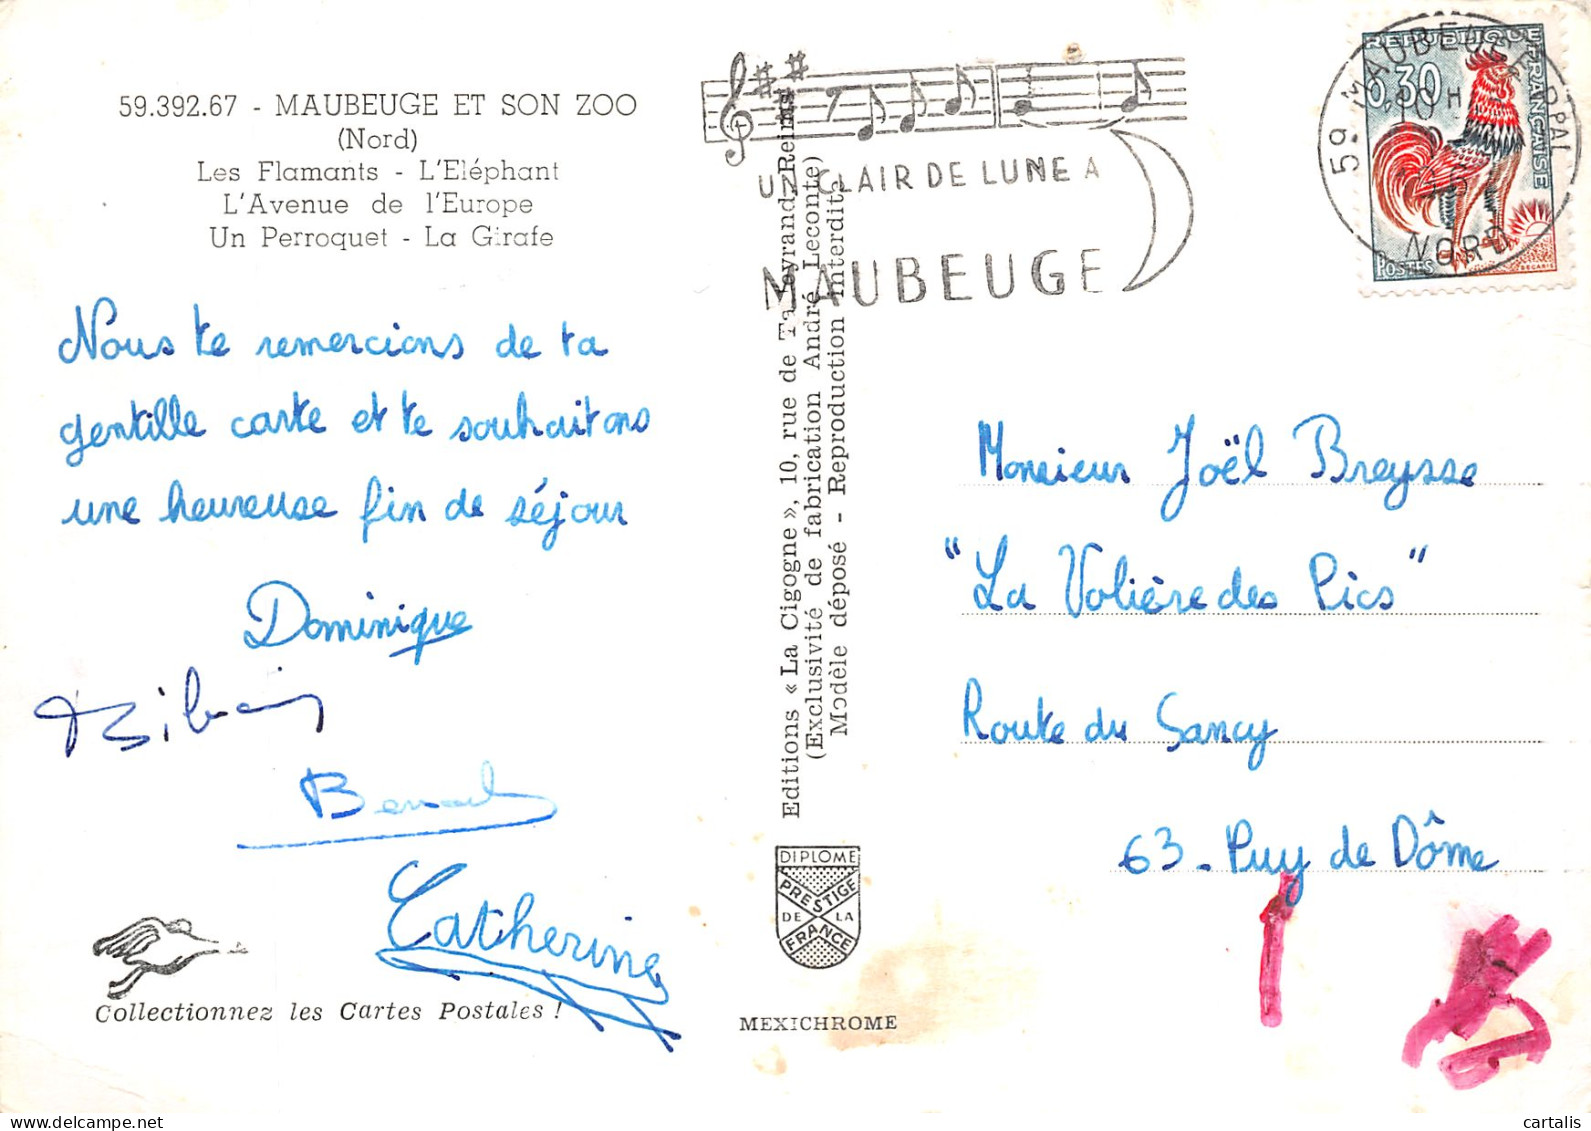 59.392.67 - MAUBEUGE ET SON ZOO
(Nord)
Les Flamants - L'Eléphant
L'Avenue de l'Europe
Un Perroquet - La Girafe
Nous te remercions de ta
gentille carte et te souhaitons
une heureuse fin de séjour
Dominique
Catherine
Collectionnez les Cartes Postales !
Editions « La Cigogne », 10, rue de Talleyrand, Reims
(Exclusivité de fabrication André Leconte)
Modèle déposé - Reproduction interdite
DIPLOME
PRESTIGE
DE LA
FRANCE
MEXICHROME
UN CLAIR DE LUNE A
MAUBEUGE
59 MAUBEUGE PPAL
NORD
REPUBLIQUE FRANÇAISE
0,30
POSTES
DECARIS
Monsieur Joël Breysse
"La Volière des Pics"
Route du Sancy
63 - Puy de Dôme
cartalis
delcampe.net